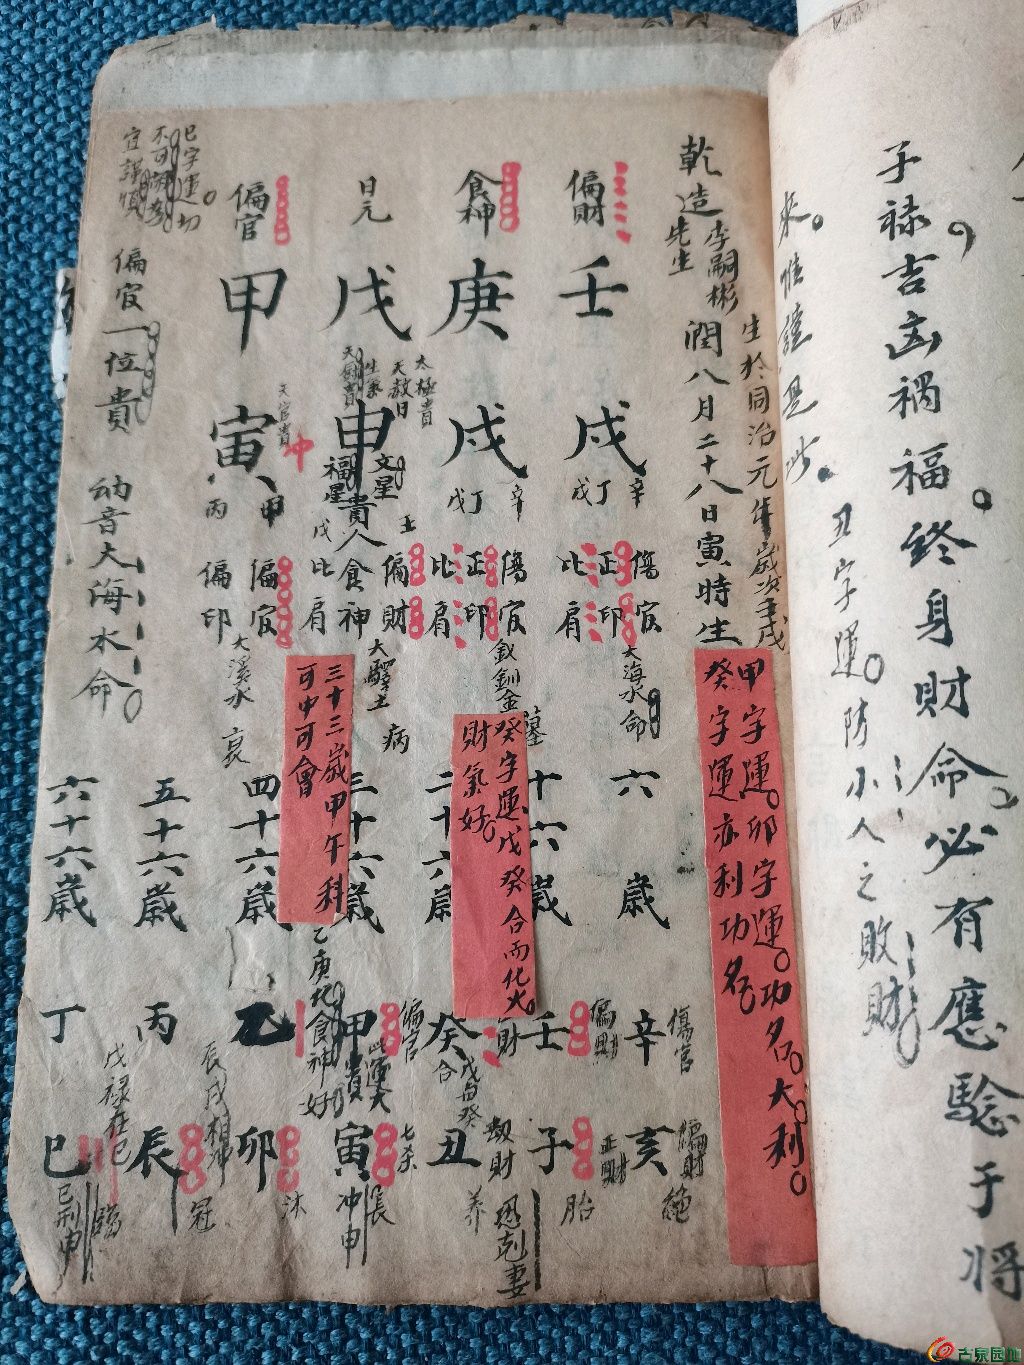 子祿吉凶禍福。終身財命。必有應驗于將
來。惟證是此。
丑字運。防小人之敗財。
乾造
李嗣彬
先生
生於同治元年歲次壬戌
潤八月二十八日寅時生
甲字運。卯字運。功名。大利。
癸字運亦利功名
偏財
壬
戌
辛
丁
戊
傷官
正印
比肩
大海水命
食神
庚
戌
辛
丁
戊
傷官
正印
比肩
釵釧金
墓
日元
戊
太極貴
天赦日
申
文星
福星貴人
壬
戊
偏財
食神
比肩
大驛土
病
偏官
甲
天官貴
寅
冲
甲
丙
偏官
偏印
大溪水
衰
癸字運戊癸合而化火
財氣好。
三十三歲甲午科
可中可會
巳字運切
宜謹慎
偏官一位貴
納音大海水命。
六歲
十六歲
二十六歲
三十六歲
四十六歲
五十六歲
六十六歲
傷官
辛
亥
偏財
絕
偏財
壬
子
正財
胎
財
癸
戊與癸
合
丑
劫財
恐剋妻
養
偏官
甲
此運大
貴
寅
七杀
長
冲申
乙庚化食神好
乙
卯
沐
丙
辰戌相冲
辰
冠
丁
戊祿在巳
巳
臨
巳刑申
古泉园地